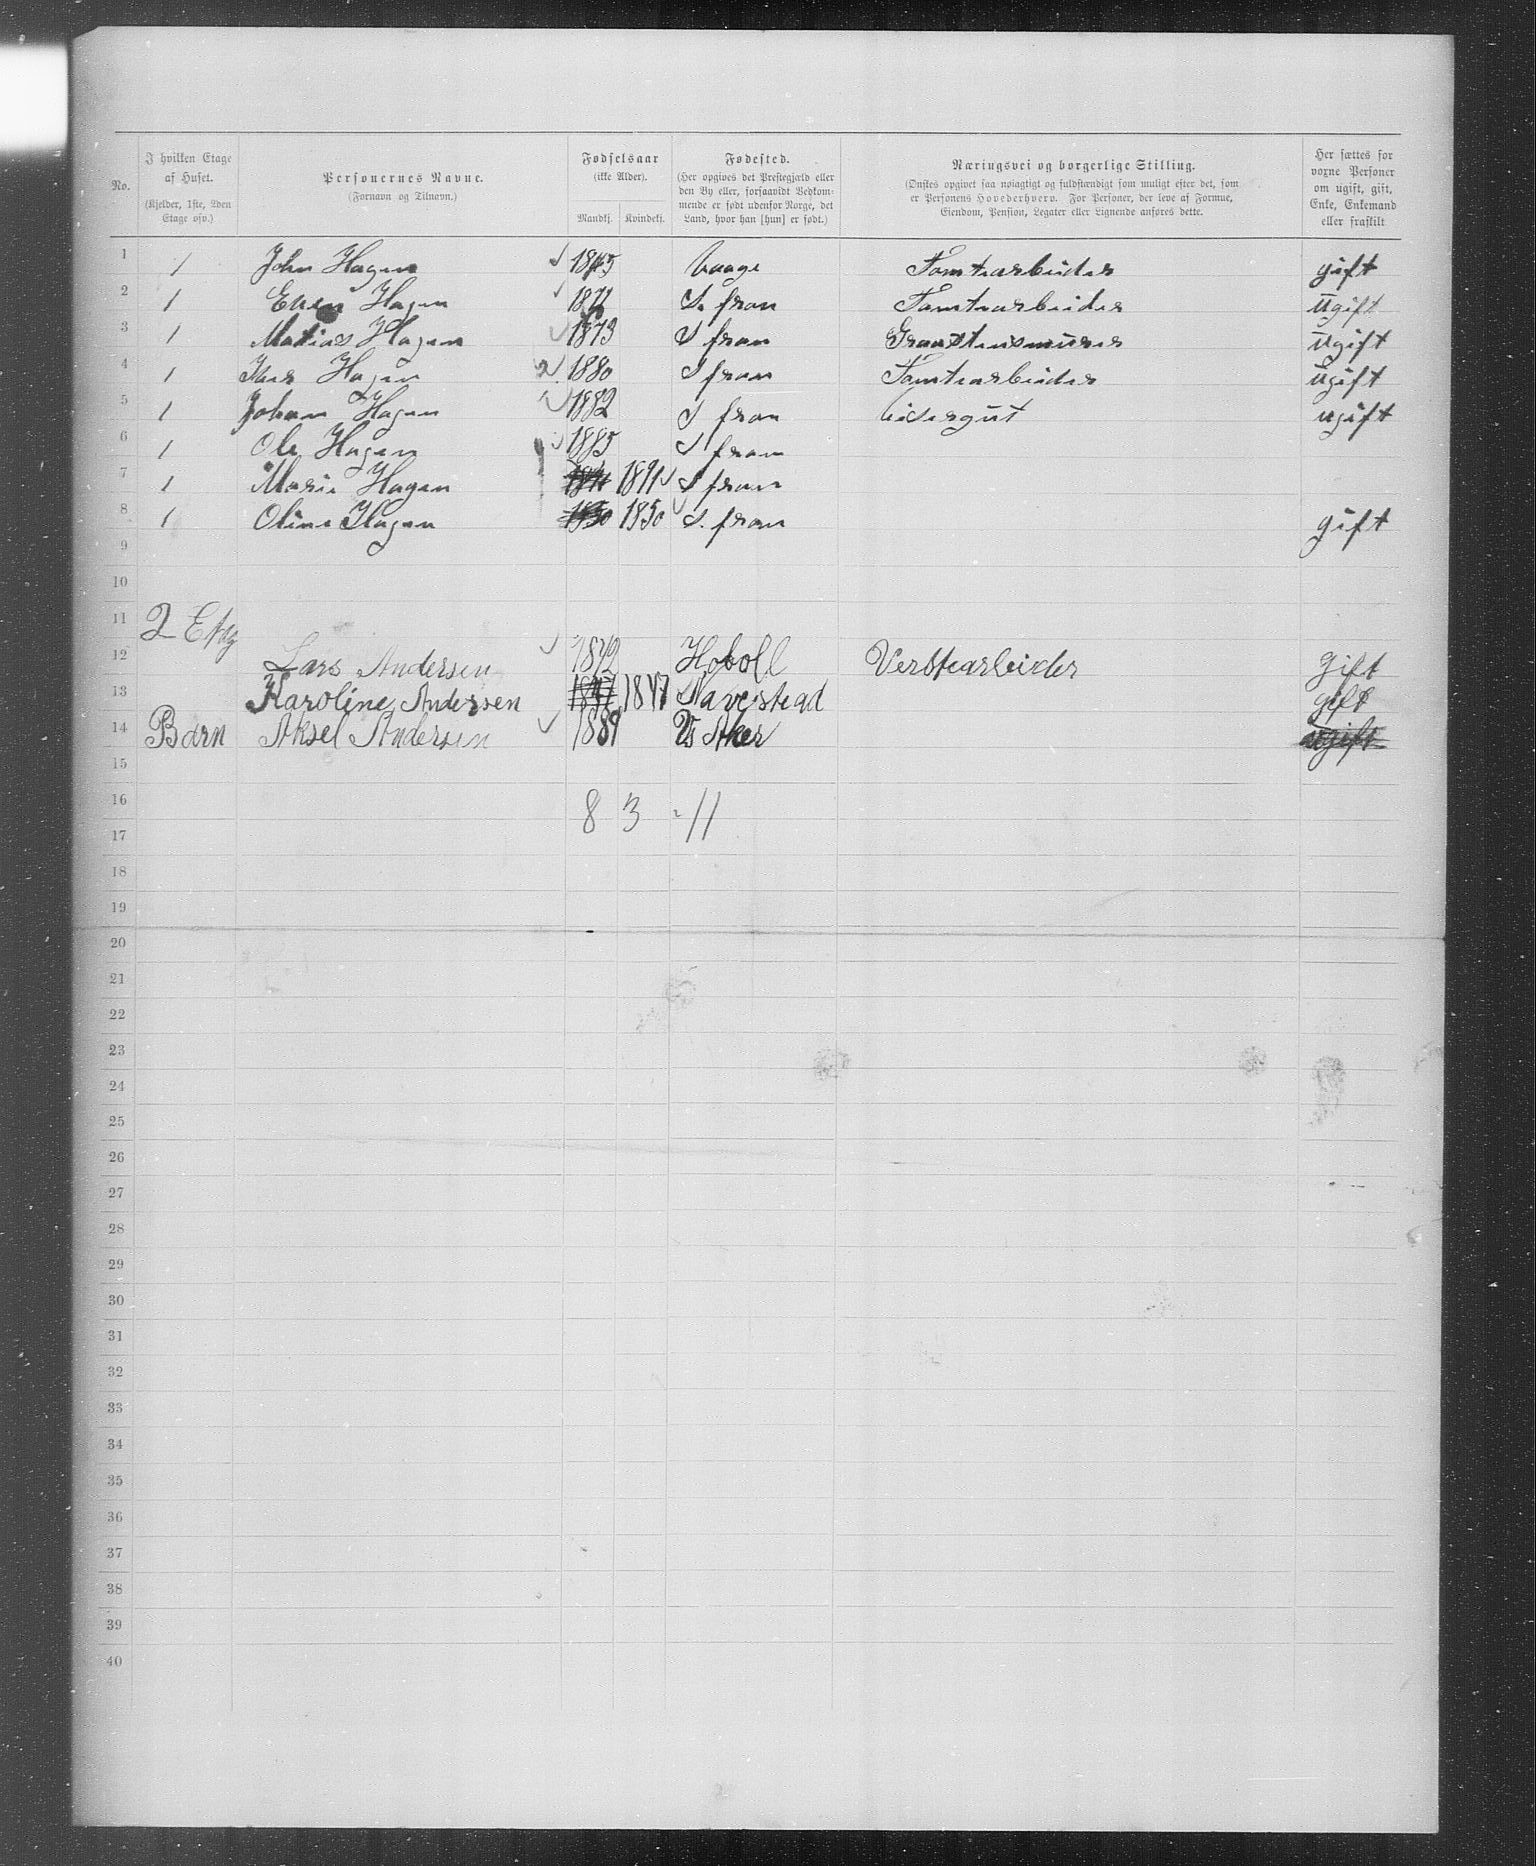 No. | I hvilken Etage af Huset. (Kjelder, 1ste, 2den Etage osv.) | Personernes Navne. (Fornavn og Tilnavn.) | Fødselsaar (ikke Alder). Mandkj. Kvindekj. | Fødested. (Her opgives det Prestegjæld eller den By eller, forsaavidt Vedkommende er født udenfor Norge, det Land, hvor han [hun] er født.) | Næringsvei og borgerlige Stilling. (Ønskes opgivet saa nøiagtigt og fuldstændigt som muligt efter det, som er Personens Hovederhverv. For Personer, der leve af Formue, Eiendom, Pension, Legater eller Lignende anføres dette. | Her sættes for voxne Personer om ugift, gift, Enke, Enkemand eller fraskilt
1 1 John Hagen 1845 Vaage Tomtearbeider gift
2 1 Hagen S. fron Tomtearbeider ugift
3 1 Matias Hagen 1873 S fron Graastensmurer ugift
4 1 Iver Hagen 1880 S fron Tomtearbeider ugift
5 1 Johan Hagen 1882 S fron visergut ugift
6 1 Ole Hagen 1885 S fron
7 1 Marie Hagen 1891 S fron
8 1 Oline Hagen 1850 1850 S. fron gift
9
10
11 2 Etag
12 Lars Andersen 1842 Hobøll Verkstearbeider gift
13 Karoline Andersen 1847 1847 Navestead gift
14 Barn Aksel Andersen 1889 Vs Aker ugift
15
16 8 3 = 11
17
18
19
20
21
22
23
24
25
26
27
28
29
30
31
32
33
34
35
36
37
38
39
40